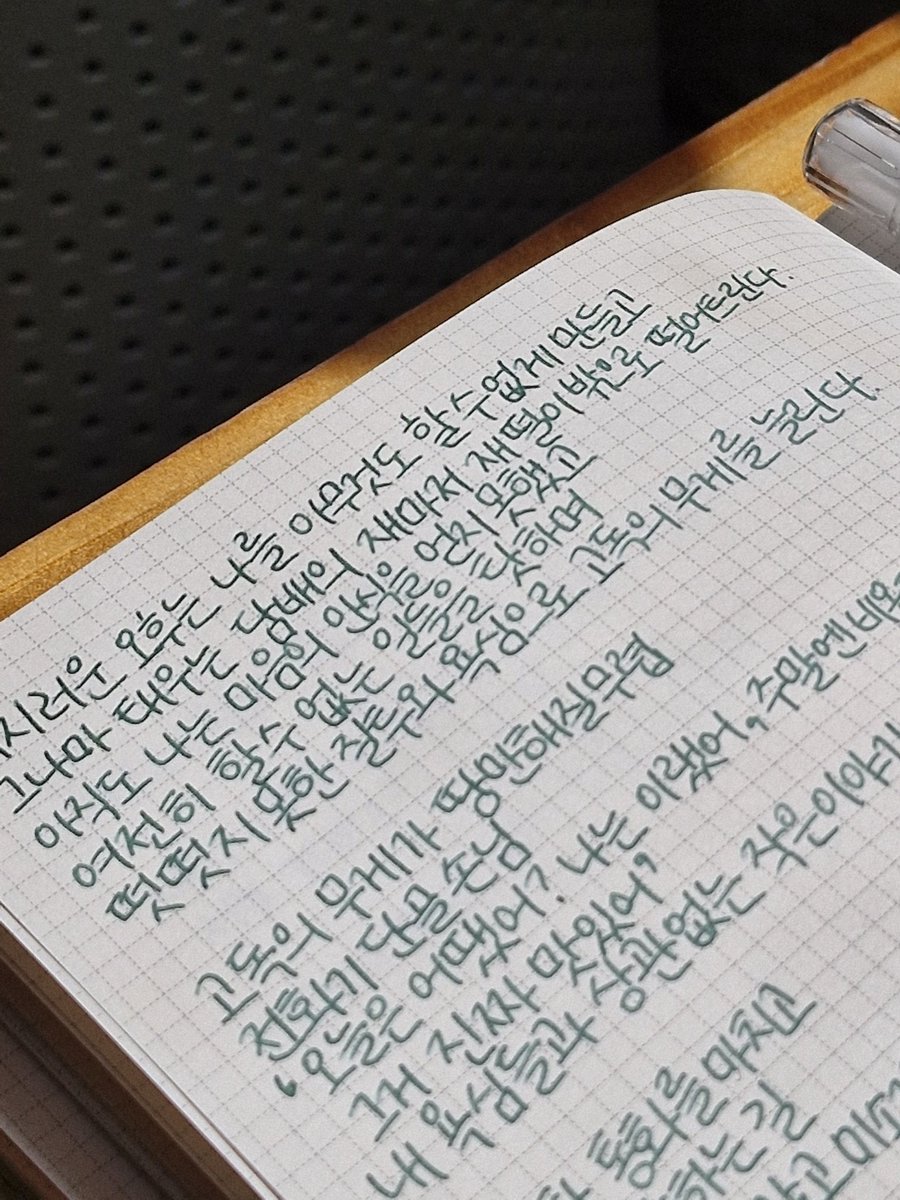 지러운 오후는 나를 아무것도 할 수 없게 만들고
그나마 태우는 담배의 재마저 재떨이 밖으로 떨어트린다.
아직도 나는 마음의 안식을 얻지 못했고
여전히 할 수 없는 일들을 탓하며
떳떳지 못한 질투와 욕심으로 고독의 무게를 늘린다.
고독의 무게가 땅만해질 무렵
전화기 단골 손님
"오늘은 어땠어? 나는 이랬어, 주말엔
그거 진짜 맛있어"
내 욕심들과 상관없는 작은 이야기
통화를 마치고
하는 길